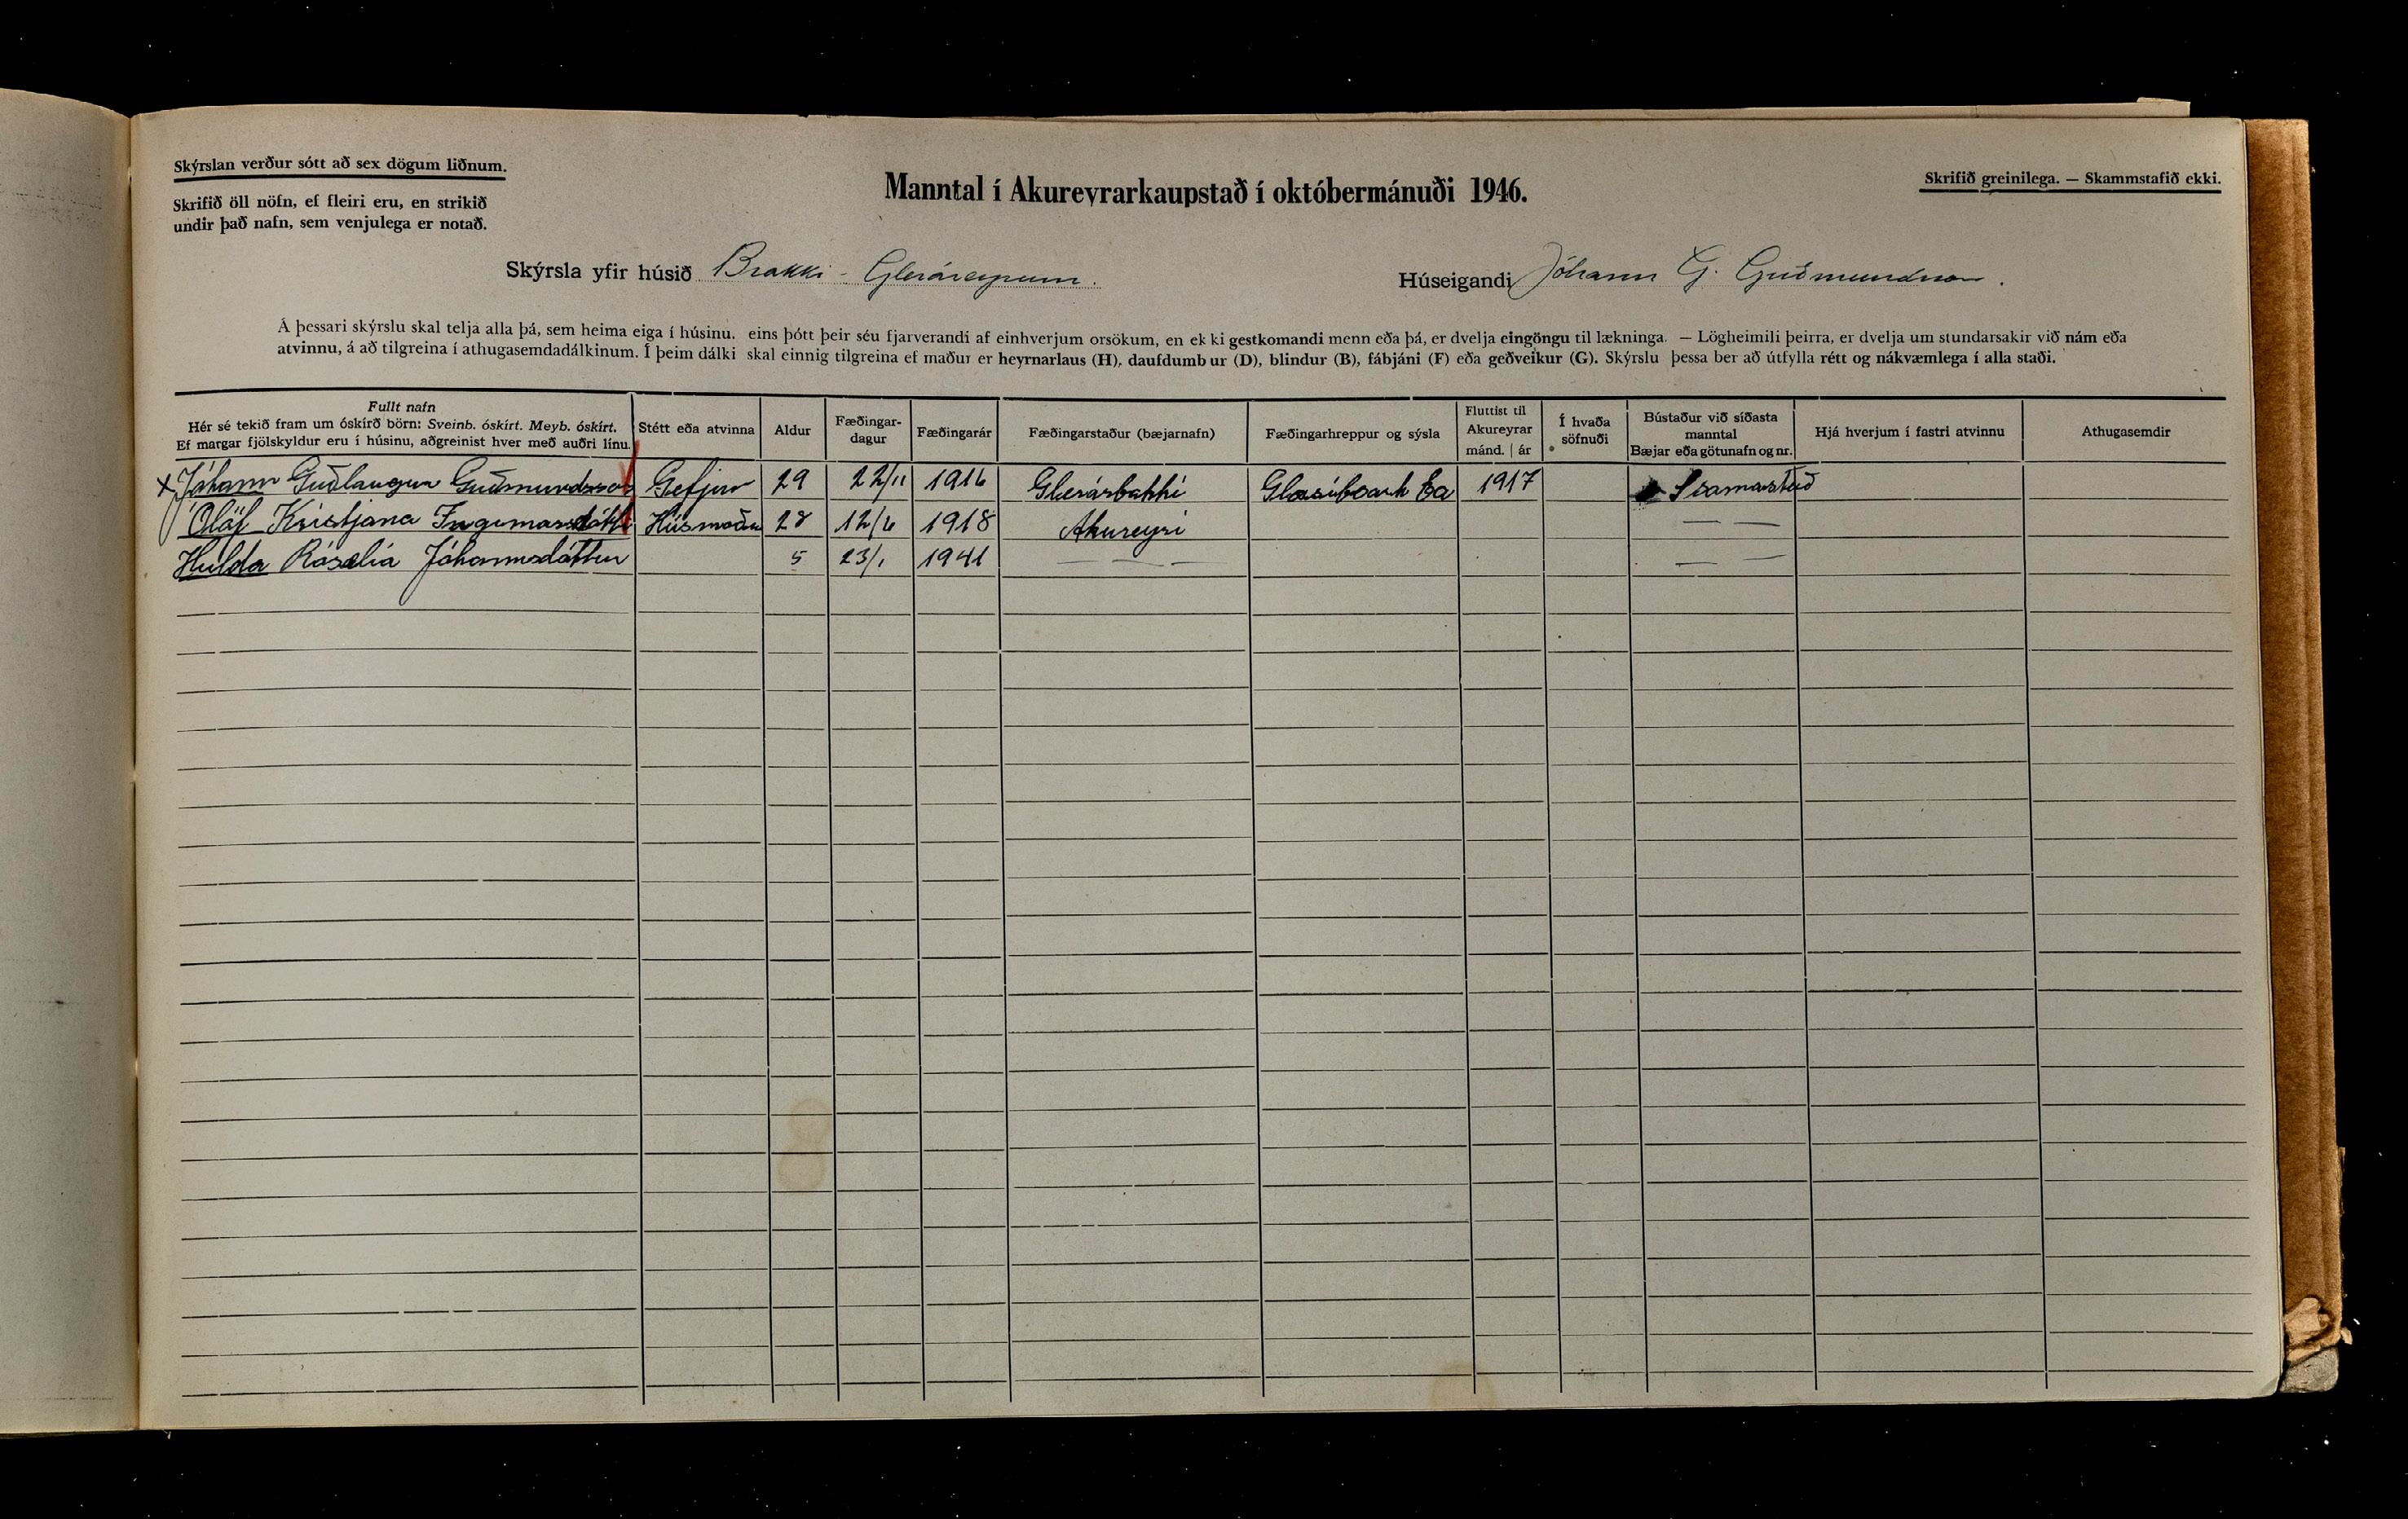 Skýrslan verður sótt að sex dögum liðnum.
Skrifið öll nöfn, ef fleiri eru, en strikið
undir það nafn, sem venjulega er notað.
Manntal í Akureyrarkaupstað í októbermánuði 1946.
Skrifið greinilega. — Skammstafið ekki.
Skýrsla yfir húsið Brakki - Gleráreyrum.
Húseigandi Jóhann G. Guðmundsson.
Á þessari skýrslu skal telja alla þá, sem heima eiga í húsinu, eins þótt þeir séu fjarverandi af einhverjum orsökum, en ekki gestkomandi menn eða þá, er dvelja eingöngu til lækninga. — Lögheimili þeirra, er dvelja um stundarsakir við nám eða
atvinnu, á að tilgreina í athugasemdadálkinum. Í þeim dálki skal einnig tilgreina ef maður er heyrnarlaus (H), daufdumbur (D), blindur (B), fábjáni (F) eða geðveikur (G). Skýrslu þessa ber að útfylla rétt og nákvæmlega í alla staði.
Fullt nafn
Hér sé tekið fram um óskírð börn: Sveinb. óskírt. Meyb. óskírt.
Ef margar fjölskyldur eru í húsinu, aðgreinist hver með auðri línu.
Stétt eða atvinna
Aldur
Fæðingar-
dagur
Fæðingarár
Fæðingarstaður (bæjarnafn)
Fæðingarhreppur og sýsla
Fluttist til
Akureyrar
mánd. | ár
Í hvaða
söfnuði
Bústaður við síðasta
manntal
Bæjar eða götunafn og nr.
Hjá hverjum í fastri atvinnu
Athugasemdir
x Jóhann Guðlaugur Guðmundsson Gefjun 29 22/11 1916 Glerárbakki Glæsibæarh Ea 1917
Ólöf Kristjana Ingimarsdóttir Húsmóðir 28 12/6 1918 Akureyri — —
Hulda Rósalía Jóhannsdóttur 5 23/1 1941 — — — — —